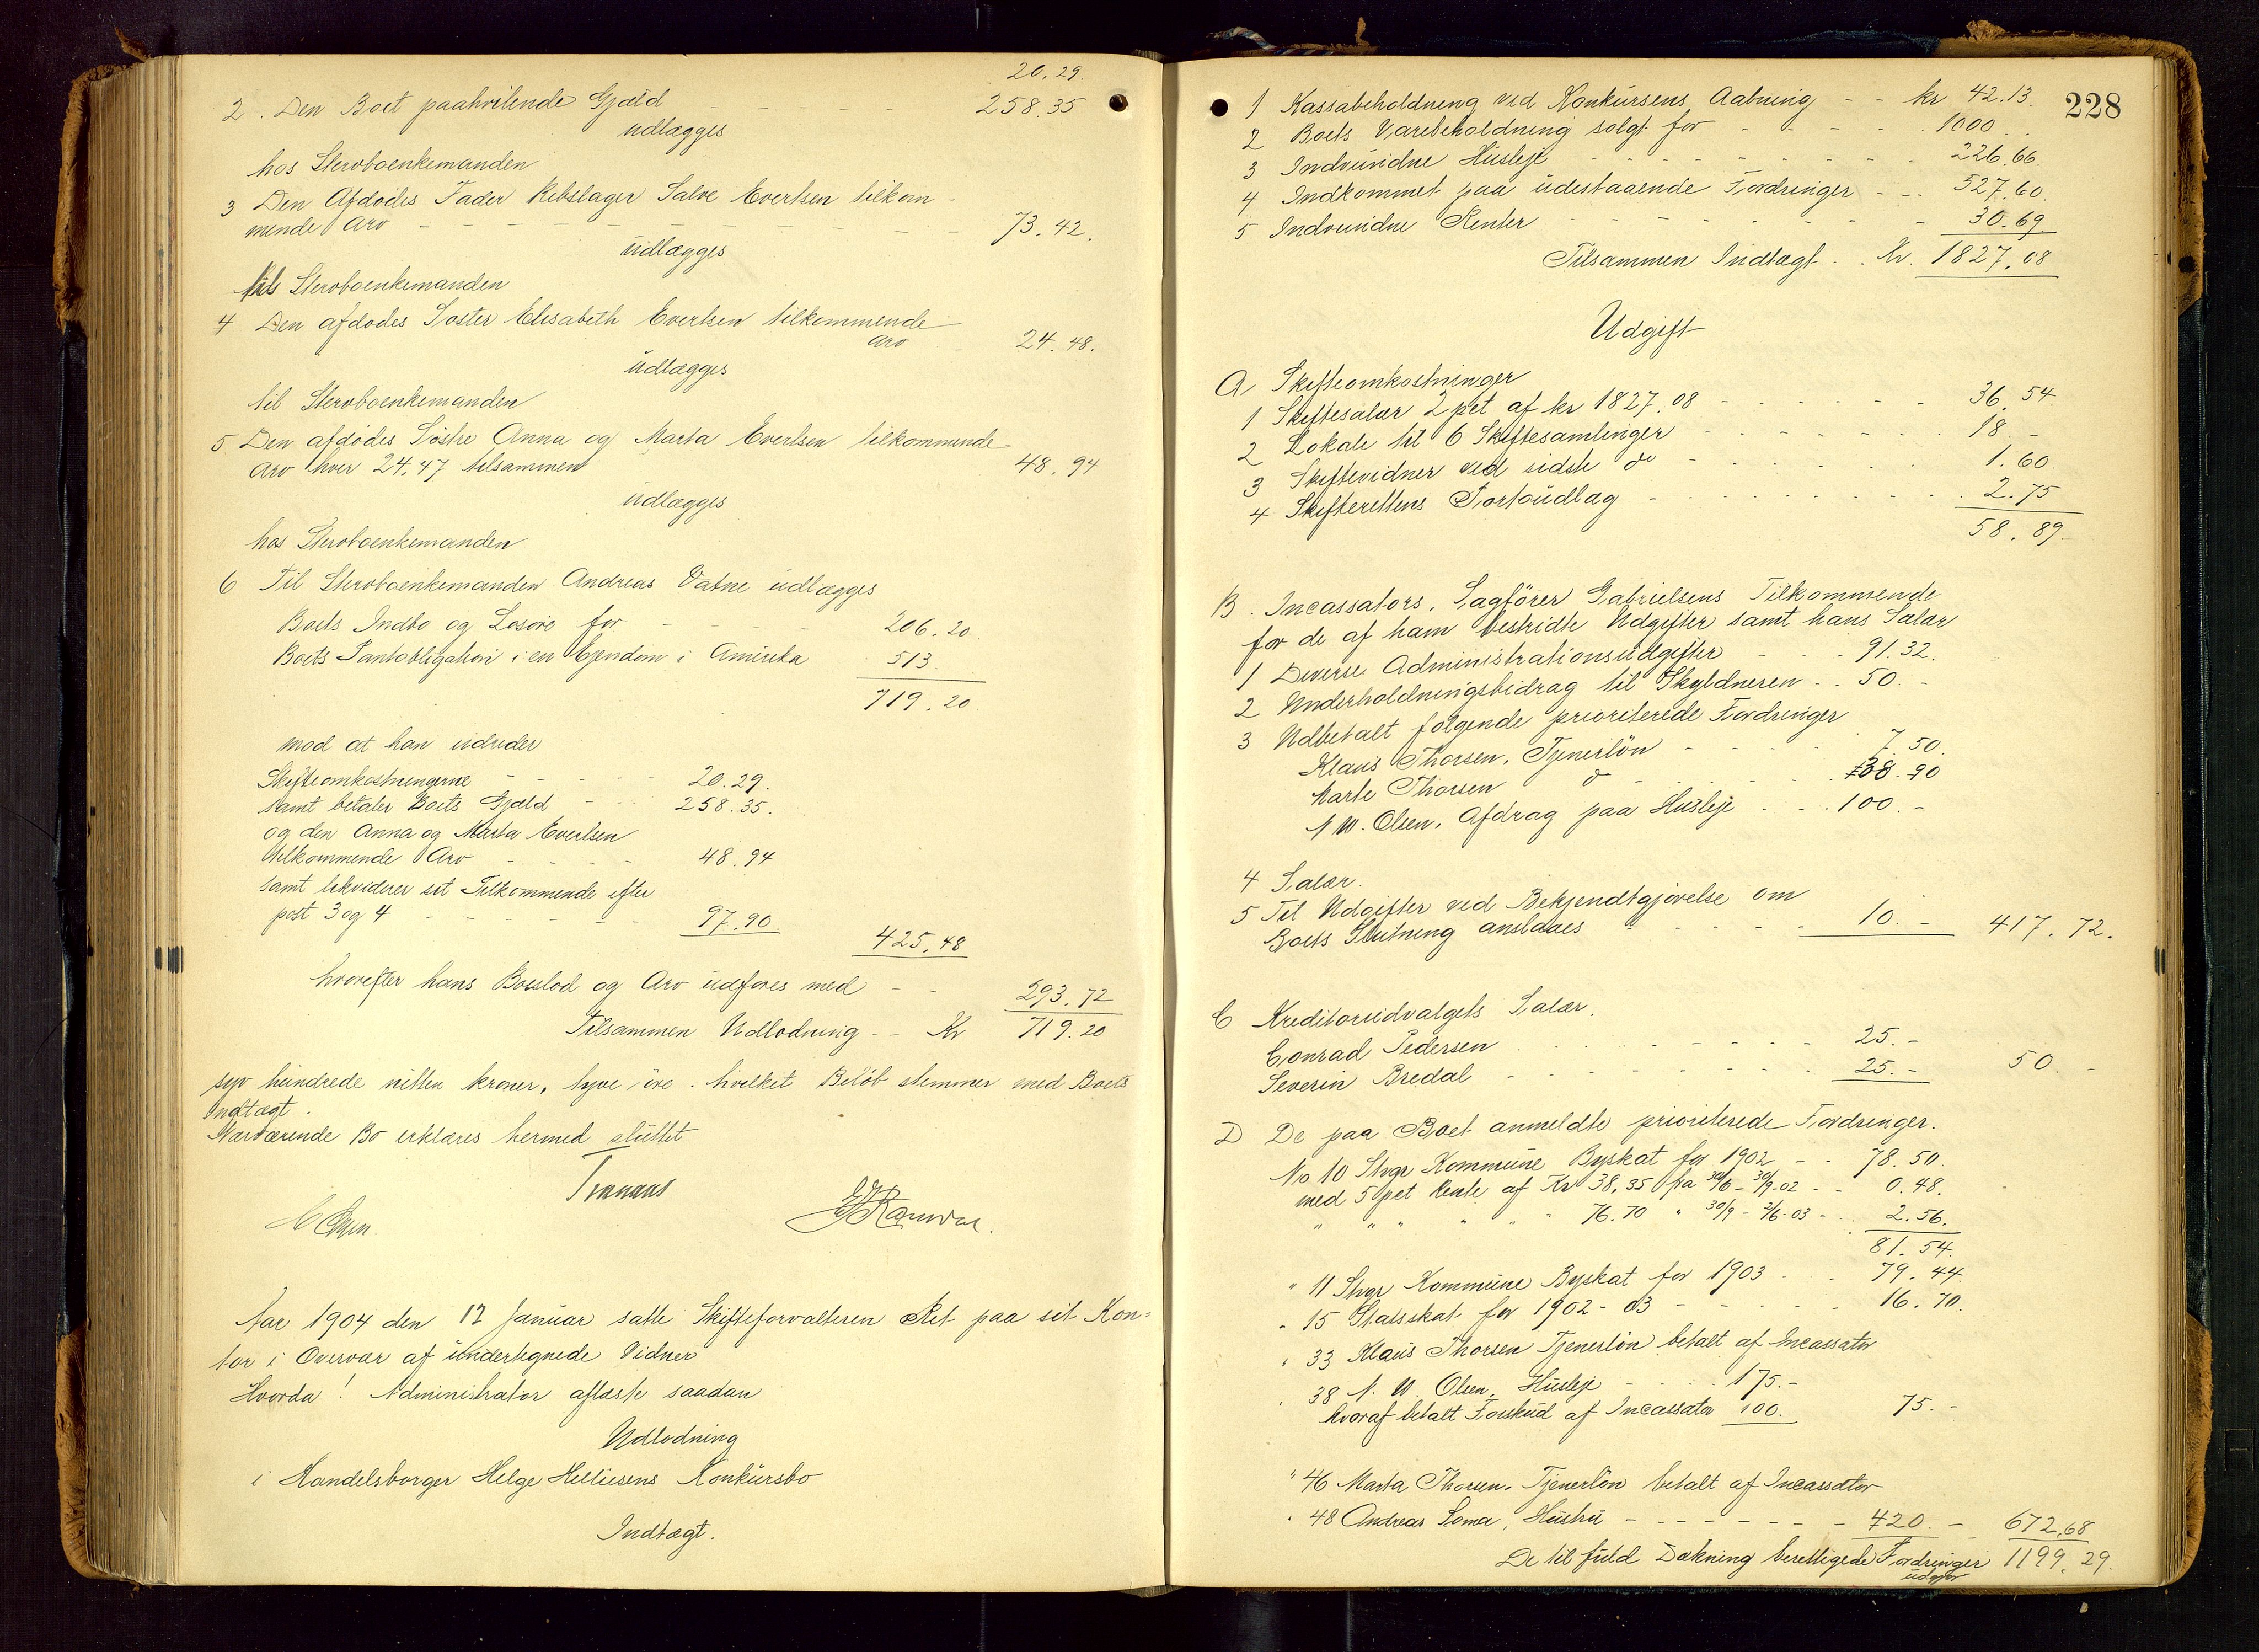 20.29.
2. Den Boet paahvilende Gjæld - - - - - 258.35
udlægges
hos Stervboenkemanden
3 Den Afdødes Fader Rebslager Salve Evertsen tilkom-
mende Arv - - - - - - - - - 73.42.
udlægges
til Stervboenkemanden
4 Den afdødes Søster Elisabeth Evertsen tilkommende
Arv - 24.48.
udlægges
til Stervboenkemanden
5 Den afdødes Søstre Anna og Marta Evertsen tilkommende
Arv hver 24,47 tilsammen 48.94
udlægges
hos Stervboenkemanden
6 Til Stervboenkemanden Andreas Vatne udlægges
Boets Indbo og Løsøre for - - - 206.20
Boets Pantobligation i en Ejendom i Amerika 513
719.20
mod at han udreder
Skifteomkostningerne - - - - 20.29.
samt betaler Boets Gjæld - - 258.35.
og den Anna og Marta Evertsen
tilkommende Arv - - - - 48.94
samt likviderer sit Tilkommende efter
post 3 og 4 - - - - - 97.90.
425.48
hvorefter hans Boeslod og Arv udføres med - - 293.72
Tilsammen Udlodning - - Kr 719.20
syv hundrede nitten kroner, tyve øre. hvilket Beløb stemmer med Boets
Indtægt.
Nærværende Bo erklæres hermed sluttet
Aar 1904 den 12 Januar satte Skifteforvalteren Ret paa sit Kon=
tor i Overvær af undertegnede Vidner
Hvorda! Administrator aflæste saadan
Udlodning
i Handelsborger Helge Helliesens Konkursbo
Indtægt.
228
1 Kassabeholdning ved Konkursens Aabning - - kr 42.13.
2 Boets Varebeholdning solgt for - - - - 1000 . .
3 Indvundne Husleje - - - - - - - 226.66.
4 Indkommet paa udestaaende Fordringer - - - 527.60.
5 Indvundne Renter - - - - - - - 30.69
Tilsammen Indtægt . . Kr. 1827.08
Udgift
A Skifteomkostninger
1 Skiftesalær 2 pct af kr 1827.08 - - - - - - 36.54
2 Lokale til 6 Skiftesamlinger - - - - - - 18. -
3 Skiftevidner ved sidste do - - - - - - 1.60.
4 Skifterettens Portoudlæg - - - - - - 2.75
58.89.
B. Incassators, Sagfører Gabrielsens Tilkommende
for de af ham bestridte Udgifter samt hans Salær
1 Diverse Administrationsudgifter - - - 91.32.
2 Underholdningsbidrag til Skyldneren . . 50. -
3 Udbetalt følgende prioriterede Fordringer
Klaus Thorsen, Tjenerløn - - - - 7.50.
Marte Thorsen do - - - - 38.90
N W. Olsen, Afdrag paa Husleje . . . 100. -
4 Salær.
5 Til Udgifter ved Bekjendtgjørelse om
Boets Slutning anslaaes - - - - 10. - 417.72.
C Kreditorudvalgets Salær.
Conrad Pedersen - - - - - - 25. -
Severin Bredal - - - - - - 25. - 50. -
D De paa Boet anmeldte prioriterede Fordringer.
No 10 Stvgr Kommune Byskat for 1902 - - 78.50.
med 5 pct Rente af Kr 38,35 fra 30/6 - 30/9-02 . . 0.48.
" " " " " " 76.70 " 30/9 - 2/6-03 - . . 2.56.
81.54.
" 11 Stvgr Kommune Byskat for 1903 . . . 79.44.
" 15 Statsskat for 1902-03 - - - - - 16.70.
" 33 Klaus Thorsen Tjenerløn betalt af Incassator
" 38 N. W. Olsen, Husleje - - - - 175.-
hvoraf betalt Forskud af Incassator 100. 75. -
" 46 Marta Thorsen. Tjenerløn betalt af Incassator
" 48 Andreas Soma, Hustru - - - - - - 420. - 672,68
De til fuld Dækning berettigede Fordringer 1199.29.
udgjør